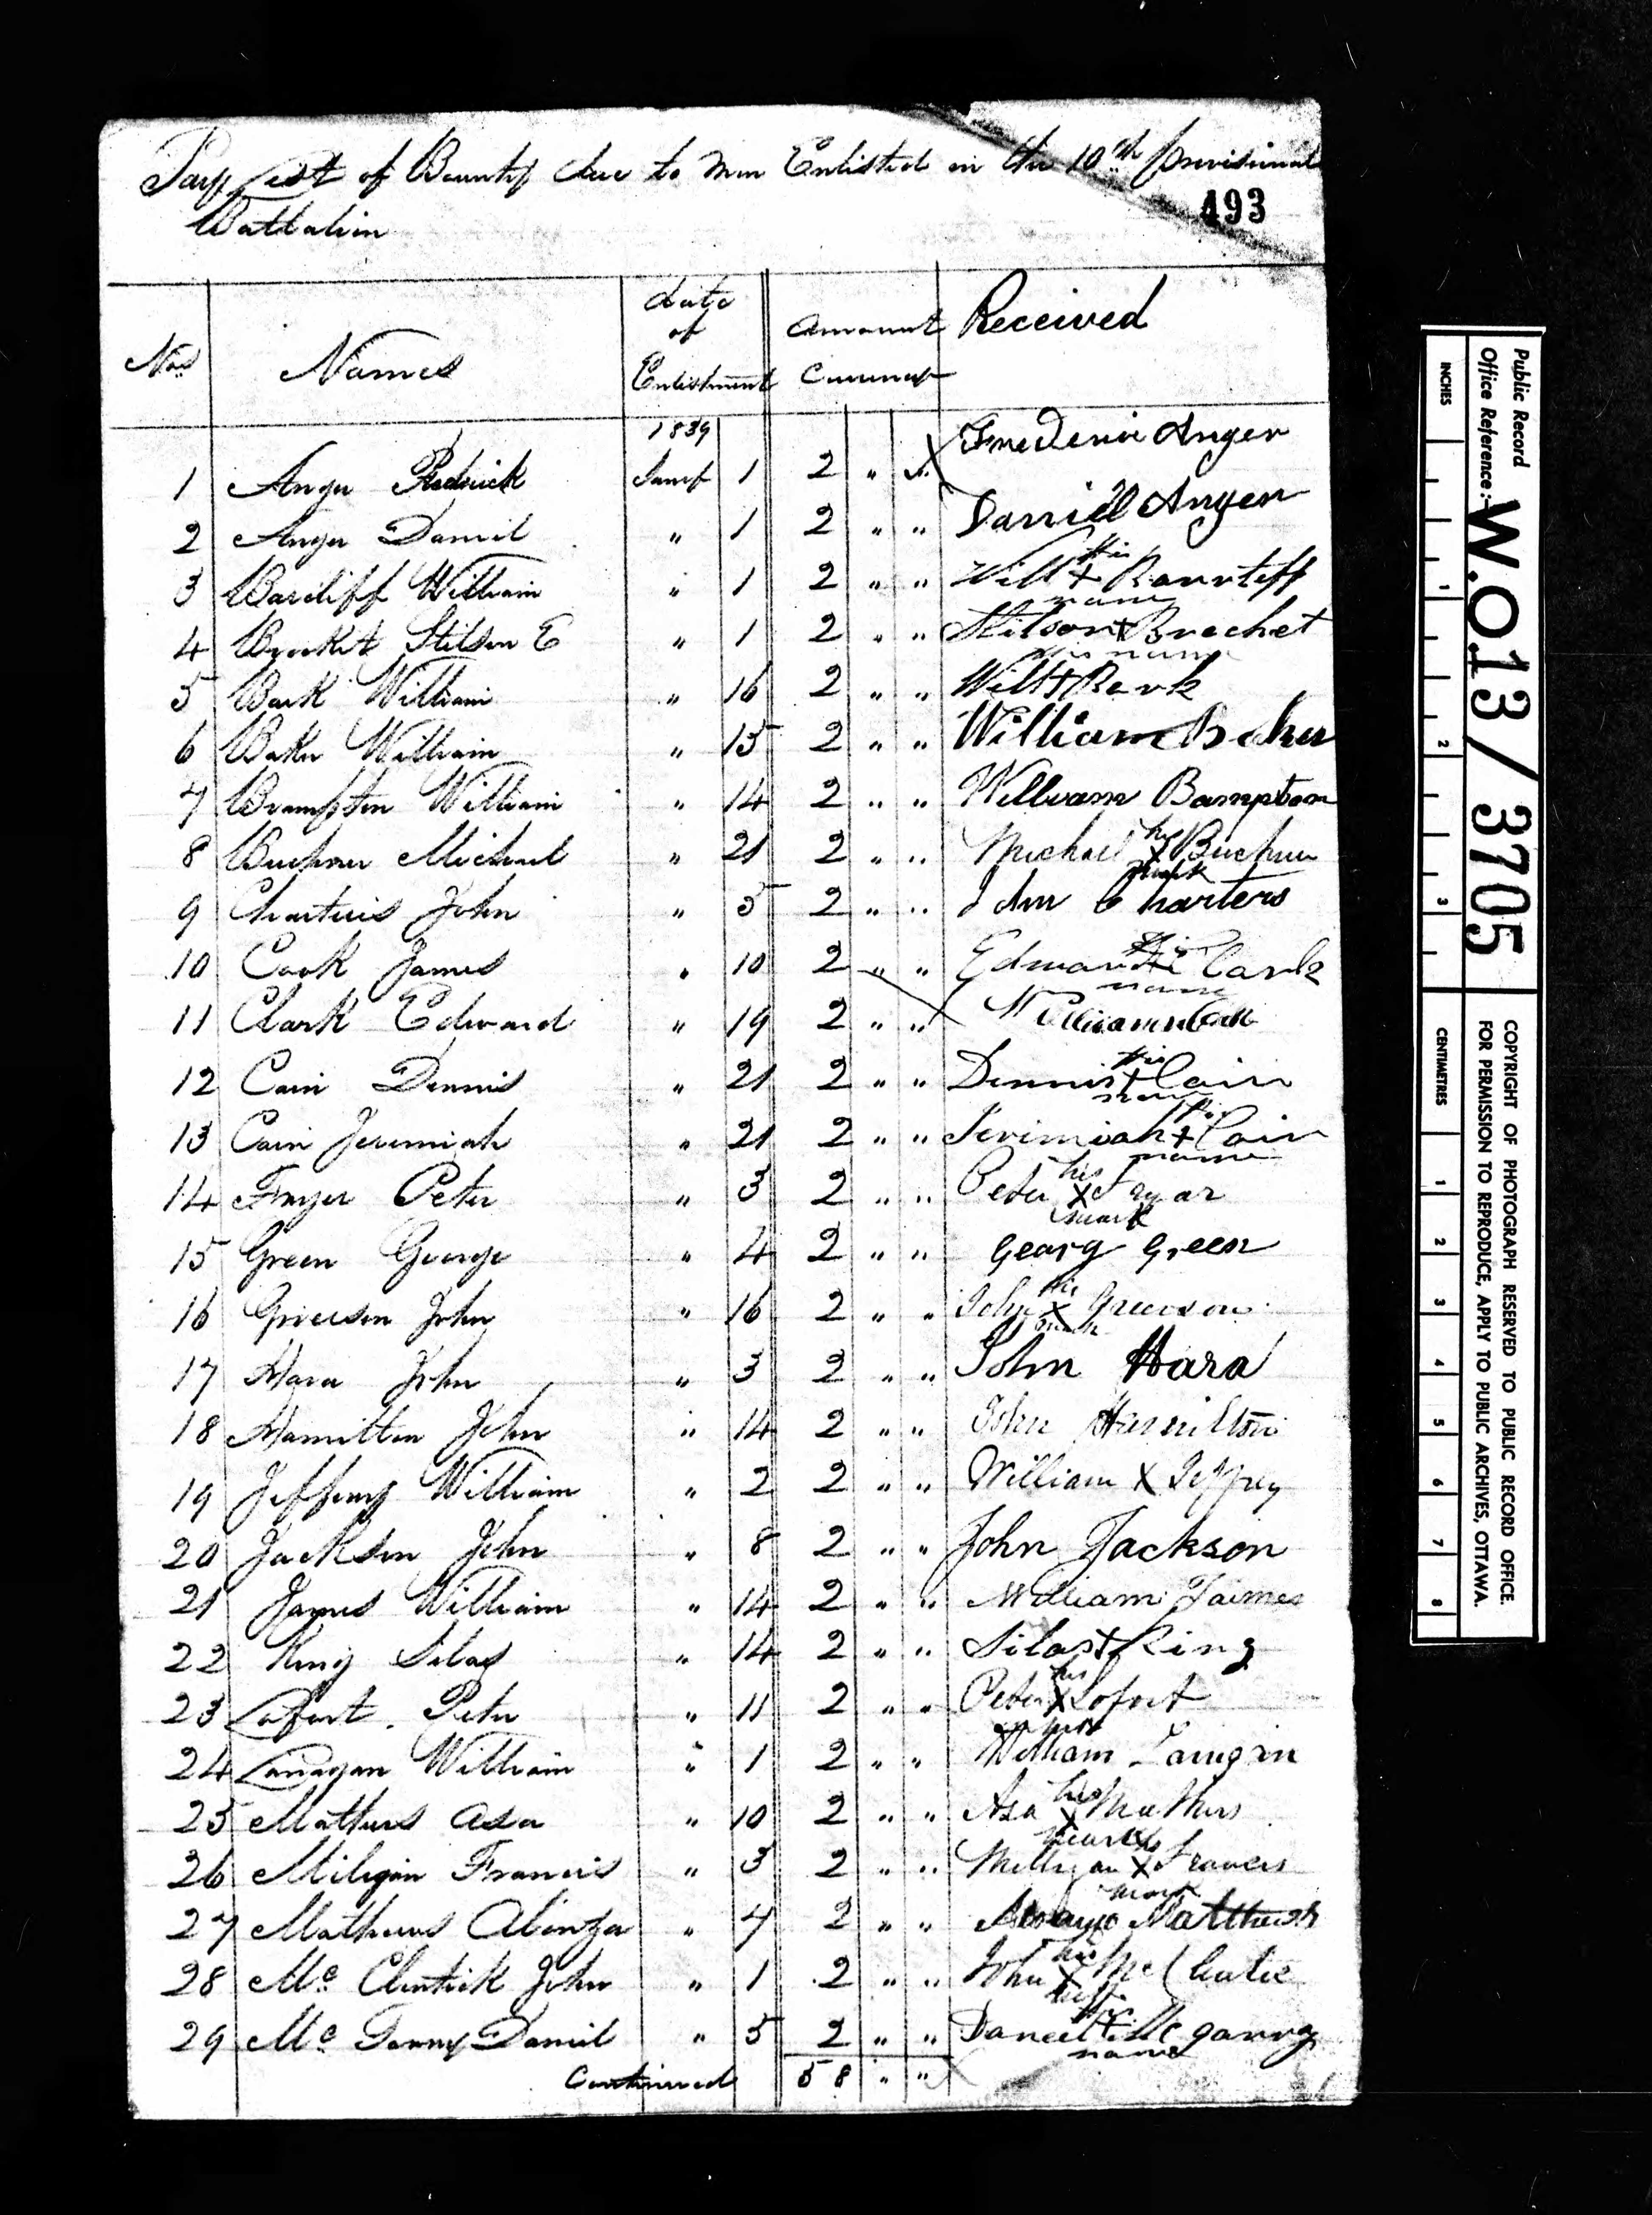 Pay List of Bounty due to men Enlisted in the 10th provisional
493
Battalion
Nos Names date of Enlistment Amount Currency Received
1839
1 Anger Fredrick Jany 1 2 " " Frederic Anger
2 Anger Daniel " 1 2 " " Daniell Anger
3 Barcliff William " 1 2 " " Will his + name
4 Brocket Stilson E " 1 2 " " Stilson + Brechet his name
5 Bark William " 16 2 " " Will + Bark
6 Baker William " 15 2 " " William Baker
7 Brampton William " 14 2 " " William Bampton
8 Buchner Michael " 21 2 " " Michael his X mark Buchner
9 Charteris John " 5 2 " " John Charters
10 Cook James " 10 2 " " Edward his + name Clark
11 Clark Edward " 19 2 " "
12 Cain Dennis " 21 2 " " Dennis his + name Cain
13 Cain Jeremiah " 21 2 " " Jerimiah his + name Cain
14 Fryer Peter " 3 2 " " Peter his X mark Fryar
15 Green George " 4 2 " " Georg Green
16 Grierson John " 16 2 " " John his X mark Greerson
17 Hara John " 3 2 " " John Hara
18 Hamilton John " 14 2 " " John Hamilton
19 Jeffery William " 2 2 " " William X Jeffrey
20 Jackson John " 8 2 " " John Jackson
21 James William " 14 2 " " William Jaimes
22 King Silas " 14 2 " " Silas + King
23 Lafort Peter " 11 2 " " Peter his X mark Lofort
24 Lanagan William " 1 2 " " William
25 Mathers Asa " 10 2 " " Asa his X mark Mathers
26 Miligan Francis " 3 2 " " Milligan his X mark Francis
27 Mathews Alonza " 7 2 " " Matthews
28 Mc Clintick John " 1 2 " " John his X
29 Mc Garry Daniel " 5 2 " " Daniel his + name Mc garry
Continued 58 " "
Public Record Office Reference:- W.O.13/3705
COPYRIGHT OF PHOTOGRAPH RESERVED TO PUBLIC RECORD OFFICE.
FOR PERMISSION TO REPRODUCE, APPLY TO PUBLIC ARCHIVES, OTTAWA.
INCHES 1 2 3
CENTIMETRES 1 2 3 4 5 6 7 8